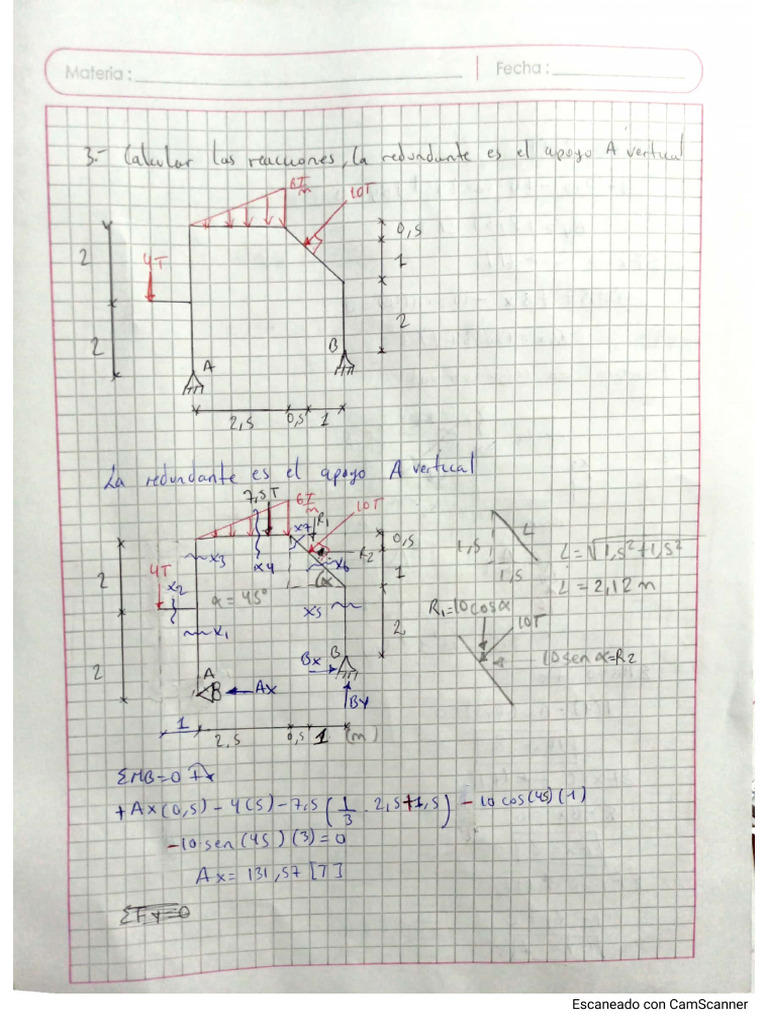 Materia:
Fecha:
3.- Calcular las reacciones, la redundante es el apoyo A vertical
6 T/m
10T
0,5
2
4T
1
2
2
B
A
2,5
0,5
1
La redundante es el apoyo A vertical
7,5T
6 T/m
10T
R1
x7
0,5
x3
x4
R2
x6
1
2
4T
x2
α = 45°
α
x5
x1
2
2
A
B
Bx
B
Ax
By
1
2,5
0,5
1
(m)
L
1,5
1,5
L = √1,5²+1,5²
L = 2,12 m
R1=10cosα
10T
10 sen α=R2
ΣMB=0
+Ax(0,5) - 4(5) - 7,5 (1/3 . 2,5+1,5) - 10 cos(45)(1)
-10 sen(45)(3)=0
Ax= 131,57 [T]
ΣFy=0
Escaneado con CamScanner